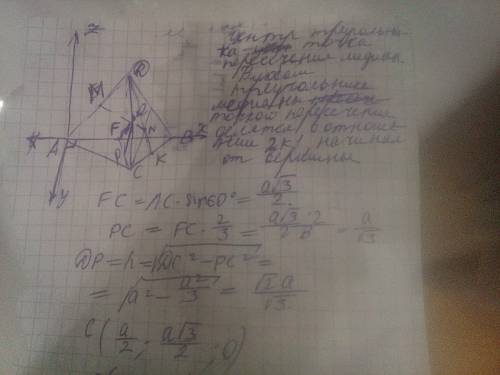 Z
Центр треугольни-
ка точка
пересечения медиан.
В любом
треугольнике
медианы
точкой пересечения
делятся в отноше-
нии 2к1 начиная
от вершины
D
M
F
N
A
P
C
K
B
X
Y
FC = AC · sin60° = a√3/2.
PC = FC · 2/3 = a√3·2/2·3 = a/√3
DP = h = √DC² − PC² =
= √a² − a²/3 = √2a/√3.
C(a/2; a√3/2; 0)